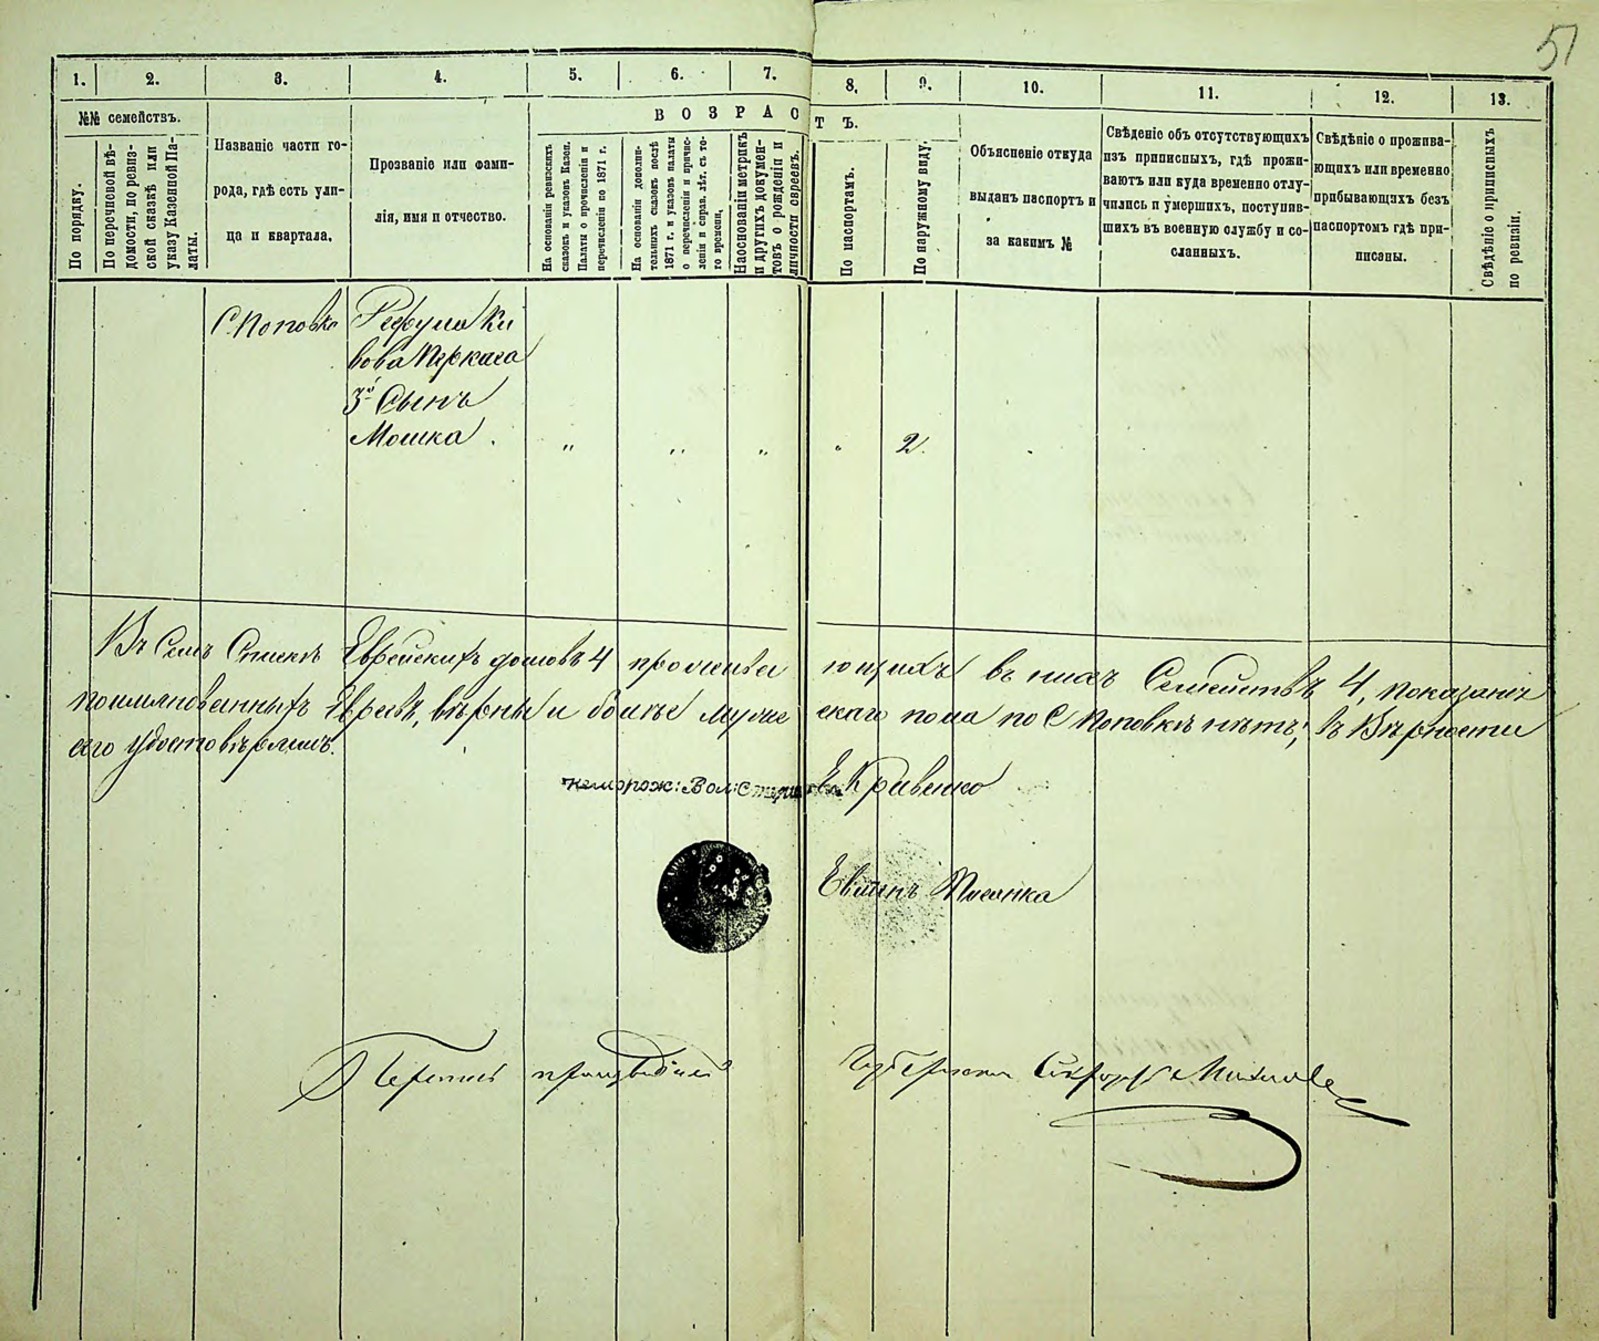 51
1. 2. 3. 4. 5. 6. 7. 8. 9. 10. 11. 12. 13.
№№ семействъ.
По порядку.
По перечневой вѣ-
домости, по ревиз-
ской сказкѣ или
указу Казенной Па-
латы.
Названіе части го-
рода, гдѣ есть ули-
ца и квартала.
Прозваніе или фами-
лія, имя и отчество.
ВОЗРАСТЪ.
На основаніи ревизскихъ
сказокъ и указовъ Казен.
Палаты о причисленіи и
перечисленіи по 1871 г.
На основаніи дополни-
тельныхъ сказокъ послѣ
1871 г. и указовъ палаты
о перечисленіи и причис-
леніи и справ. лѣт. съ то-
го времени.
На основаніи метрикъ
и другихъ докумен-
товъ о рожденіи и
личности евреевъ.
По паспортамъ.
По наружному виду.
Объясненіе откуда
выданъ паспортъ и
за какимъ №
Свѣденіе объ отсутствующихъ
изъ приписныхъ, гдѣ прожи-
ваютъ или куда временно отлу-
чились и умершихъ, поступив-
шихъ въ военную службу и со-
сланныхъ.
Свѣдѣніе о прожива-
ющихъ или временно
прибывающихъ безъ
паспортомъ гдѣ при-
писаны.
Свѣдѣніе о приписныхъ
по ревизіи.
С. Поповка
3й Сынъ
Мошка . „ „ „ „ 2.
Въ Семъ Спискѣ Еврейскихъ домовъ 4 прожива ющихъ въ нихъ Семействъ 4, показаніе
поимянованныхъ Евреевъ, вѣрны и болѣе мужс скаго пола по С Поповкѣ нѣтъ; въ Вѣрности
сего удостовѣряемъ.
Кривенко